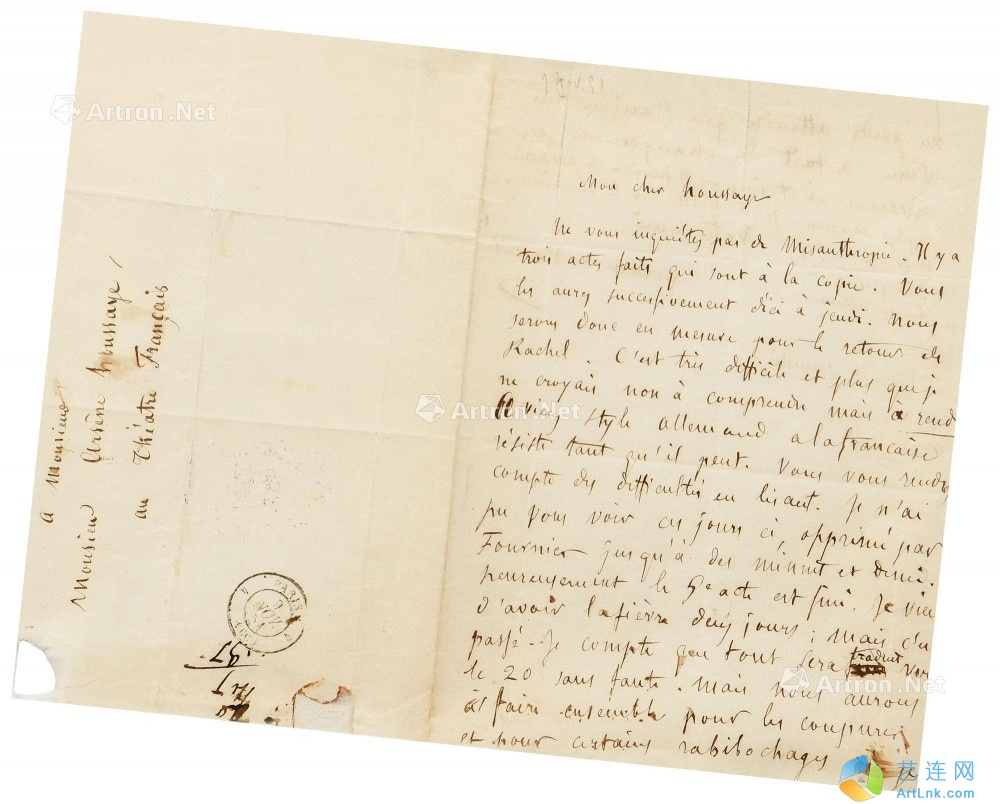 à Monsieur
Monsieur Arsène houssaye
au théatre Français
PARIS
9
NOV
51
Mon cher houssaye
Ne vous inquiétez pas de Misanthropie. Il y a
trois actes faits qui sont à la copie. Vous
les aurez successivement d'ici à jeudi. Nous
serons donc en mesure pour le retour de
Rachel. C'est très difficile et plus que je
ne croyais non à comprendre mais à rend
vieux style allemand a la française
résiste tant qu'il peut. Vous vous rendez
compte des difficultés en lisant. Je n'ai
pu vous voir ces jours ci, opprimé par
Fournier jusqu'à des minuit et demi.
heureusement le 5e acte est fini. Je vien
d'avoir la fièvre deux jours ; mais c'e
passé. Je compte que tout sera traduit vers
le 20 sans faute. Mais nous aurons
à faire ensemble pour les coupures
et pour certains rabibochages
Artron.Net
Artron.Net
Artron.Net
艺连网
ArtLnk.com